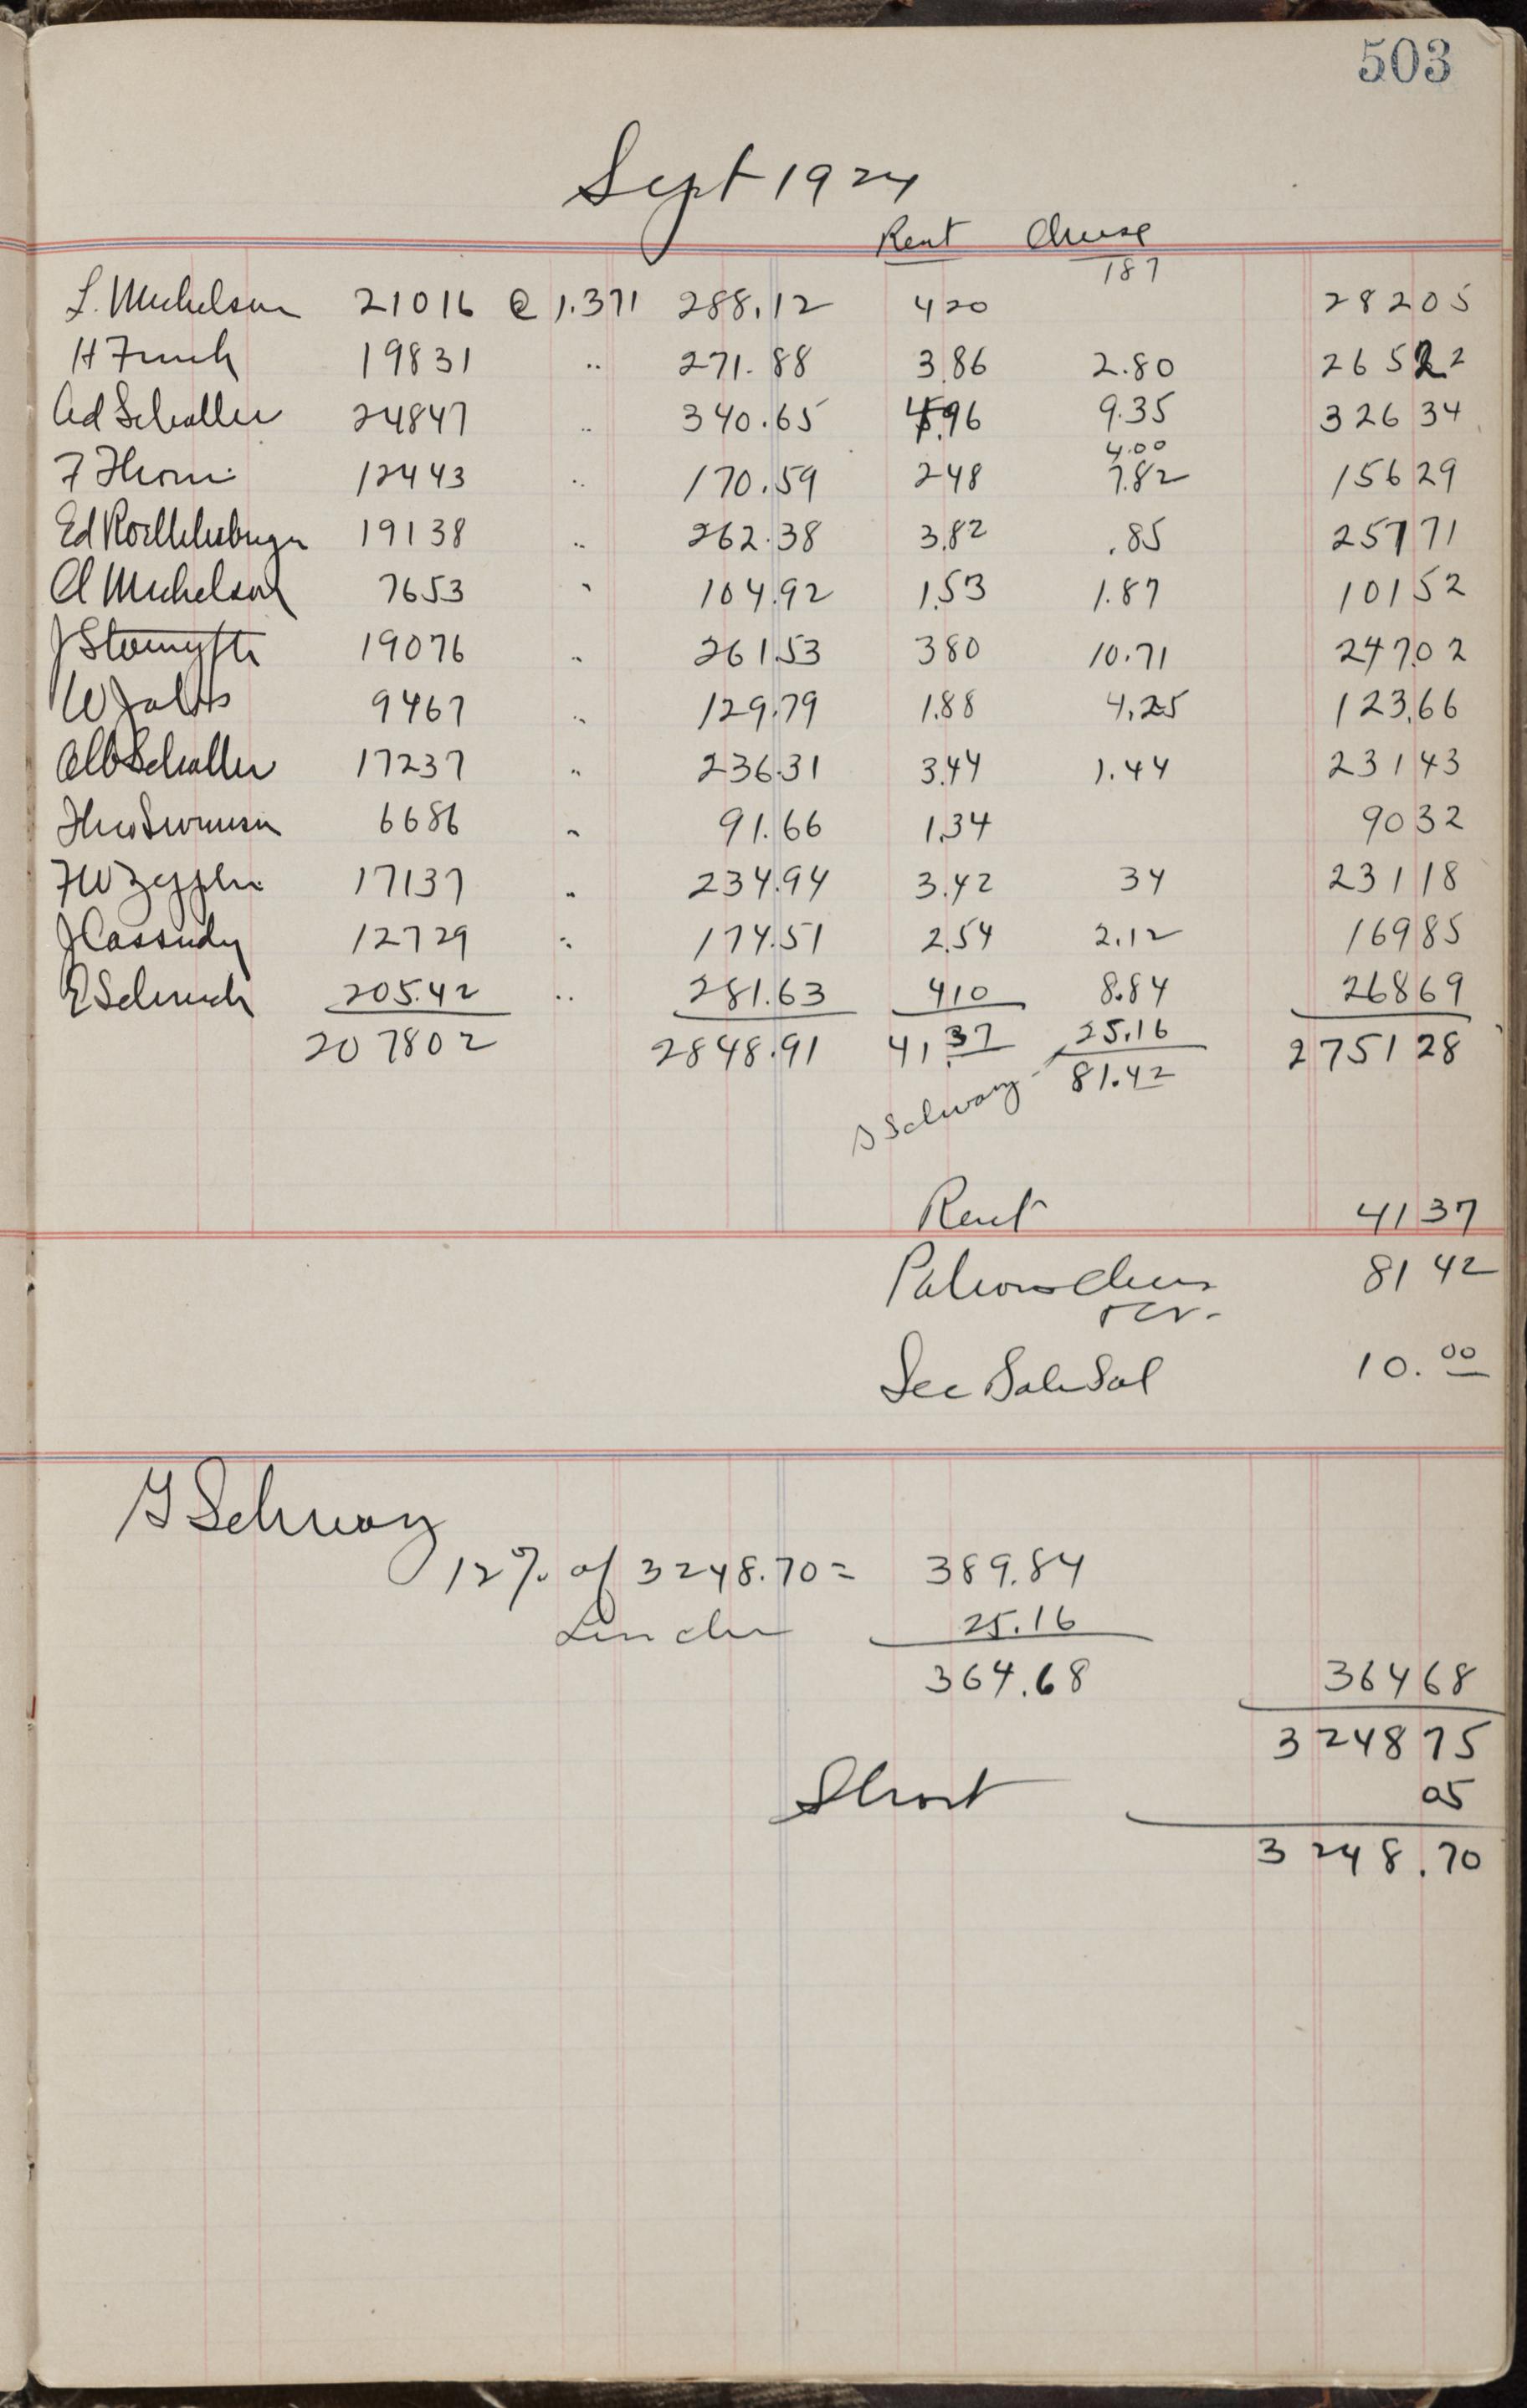 503
Sept 1924
Rent Cheese
L. Michelson 21016 @ 1.371 288.12 420 187 28205
H Funk 19831 .. 271.88 3.86 2.80 26522
Ad Schaller 24847 .. 340.65 4.96 9.35 32634
4.00
F Thom 12443 .. 170.59 248 7.82 15629
Ed 19138 .. 262.38 3.82 .85 25771
A Michelson 7653 " 104.92 1.53 1.87 10152
J 19076 .. 261.53 380 10.71 247.02
W 9467 .. 129.79 1.88 4.25 123.66
Alb Schaller 17237 .. 236.31 3.44 1.44 23143
Theo Swanson 6686 " 91.66 1.34 9032
FW 17137 .. 234.94 3.42 34 23118
J Cassudy 12729 .. 174.51 2.54 2.12 16985
E Schuch 205.42 .. 281.63 410 8.84 26869
207802 2848.91 41.37 25.16 275128
81.42
Rent 4137
Patrons 8142
Sec Sal 10.00
G Schwarz
12% of 3248.70 = 389.84
25.16
364.68 36468
324875
Short 05
3248.70